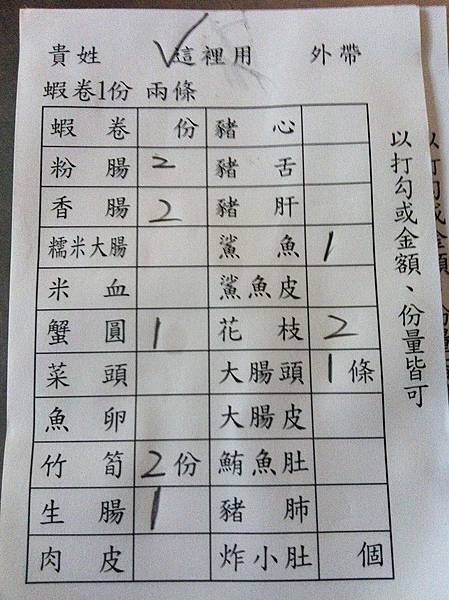 貴姓 ✓這裡用 外帶
蝦卷1份 兩條
蝦卷 份 豬心
粉腸 2 豬舌
香腸 2 豬肝
糯米大腸 鯊魚 1
米血 鯊魚皮
蟹圓 1 花枝 2
菜頭 大腸頭 1條
魚卵 大腸皮
竹筍 2份 鮪魚肚
生腸 1 豬肺
肉皮 炸小肚 個
以打勾或金額、份量皆可